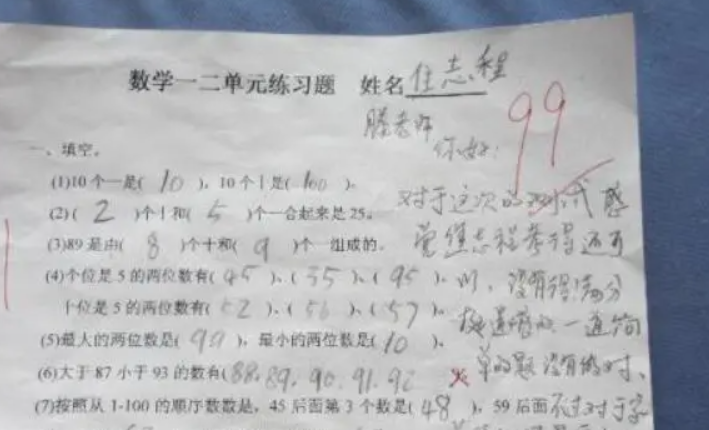 数学一二单元练习题 姓名 任志程
滕老师
你好:
99
一、填空。
(1)10个一是( 10 ),10个十是( 100 )。
(2)( 2 )个十和( 5 )个一合起来是25。
(3)89是由( 8 )个十和( 9 )个一组成的。
(4)个位是5的两位数有( 45 )、( 35 )、( 95 )、
十位是5的两位数有( 52 )、( 56 )、( 57 )。
(5)最大的两位数是( 99 ),最小的两位数是( 10 )。
(6)大于87小于93的数有(88.89.90.91.92
(7)按照从1-100的顺序数数是,45后面第3个数是( 48 ),59后面
对于这次的测试感
觉任志程考得还可
以,没有得满分
挺遗憾的一道简
单的题没有做对、
不过对于字